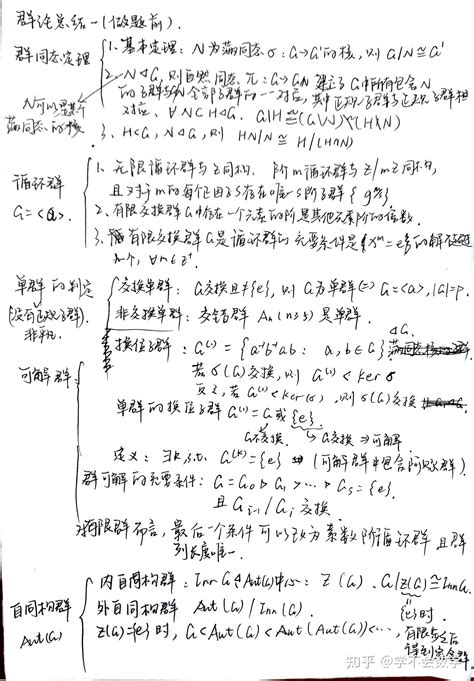 群论总结一(做题前).
群同态定理
1. 基本定理: N为满同态σ: G→G'的核, 则 G/N≅G'
2. N◁G, 则自然同态 π: G→G/N 建立了G中所有包含N
的子群与G/N全部子群的一一对应, 其中正规子群与正规子群相
对应, ∀N⊂H◁G. G/H≅(G/N)/(H/N)
N可以是某个
满同态的核.
3. H<G, N◁G, 则 HN/N≅H/(H∩N)
循环群
G=<a>.
1. 无限循环群与Z同构, 阶m循环群与Z/mZ同构,
且对于m的每个因子s存在唯一s阶子群
2. 有限交换群G中存在一个元素的阶是其他元素阶的倍数.
3. 有限交换群G是循环群的充要条件是{x^m=e}的解
m个, ∀m∈Z⁺
单群的判定
(没有正规子群).
非平凡
交换单群: G交换且≠{e}, 则G为单群⇔G=<a>, |a|=p.
非交换单群: 交错群 An(n≥5)是单群.
可解群:
换位子群: G⁽¹⁾={a⁻¹b⁻¹ab: a,b∈G} ◁G.
若σ(G)交换, 则 G⁽¹⁾<kerσ
反之, 若G⁽¹⁾<Ker(σ), 则σ(G)交换
单群的换位子群 G⁽¹⁾=G或{e}.
G不交换. G交换⇒可解
定义: ∃k, s.t. G⁽ᵏ⁾={e} (可解群中包含阿贝尔群).
群可解的充要条件: G=G₀▷G₁>...>Gs={e}.
且 Gi-1/Gi 交换.
对有限群而言, 最后一个条件可以改为素数阶循环群 且群
列长度唯一.
自同构群
Aut(G)
内自同构群: Inn G◁Aut(G) 中心: Z(G). G/Z(G)≅Inn G.
外自同构群 Aut(G)/Inn(G).
{e}时.
Z(G)={e}时, G<Aut(G)<Aut(Aut(G))<..., 有限步之后
得到完全群.
知乎 @学不会数学